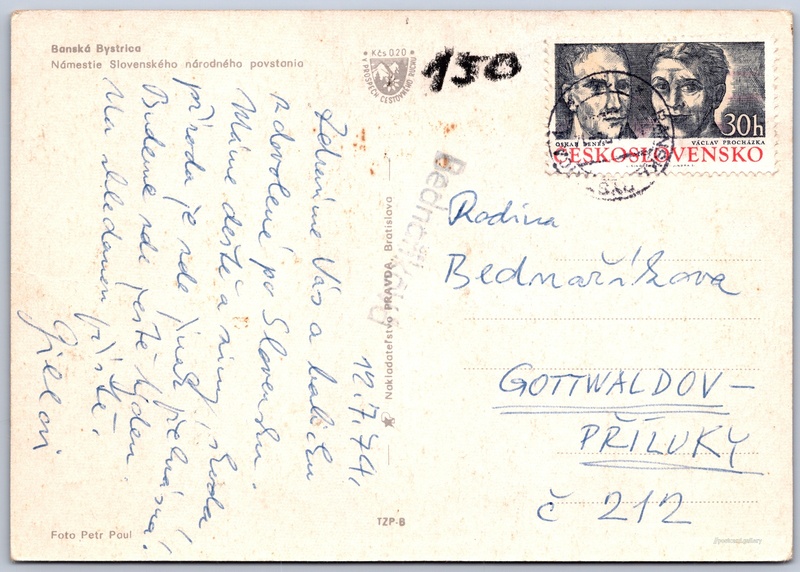 Banská Bystrica
Námestie Slovenského národného povstania
Kčs 0.20
V PROSPECH CESTOVNÉHO RUCHU
150
OSKAR BENEŠ
VÁCLAV PROCHÁZKA
30h
ČESKOSLOVENSKO
12.7.74.
Zdravíme Vás a babičku
z dovolené po Slovensku.
Máme deště a zimy, škoda
příroda je zde jinak překrásná!
Budeme zde ještě týden.
Na shledanou příště.
Nakladateľstvo PRAVDA, Bratislava
Rodina
Bednaříkova
GOTTWALDOV-
PŘÍLUKY
č 212
Foto Petr Paul
TZP-B